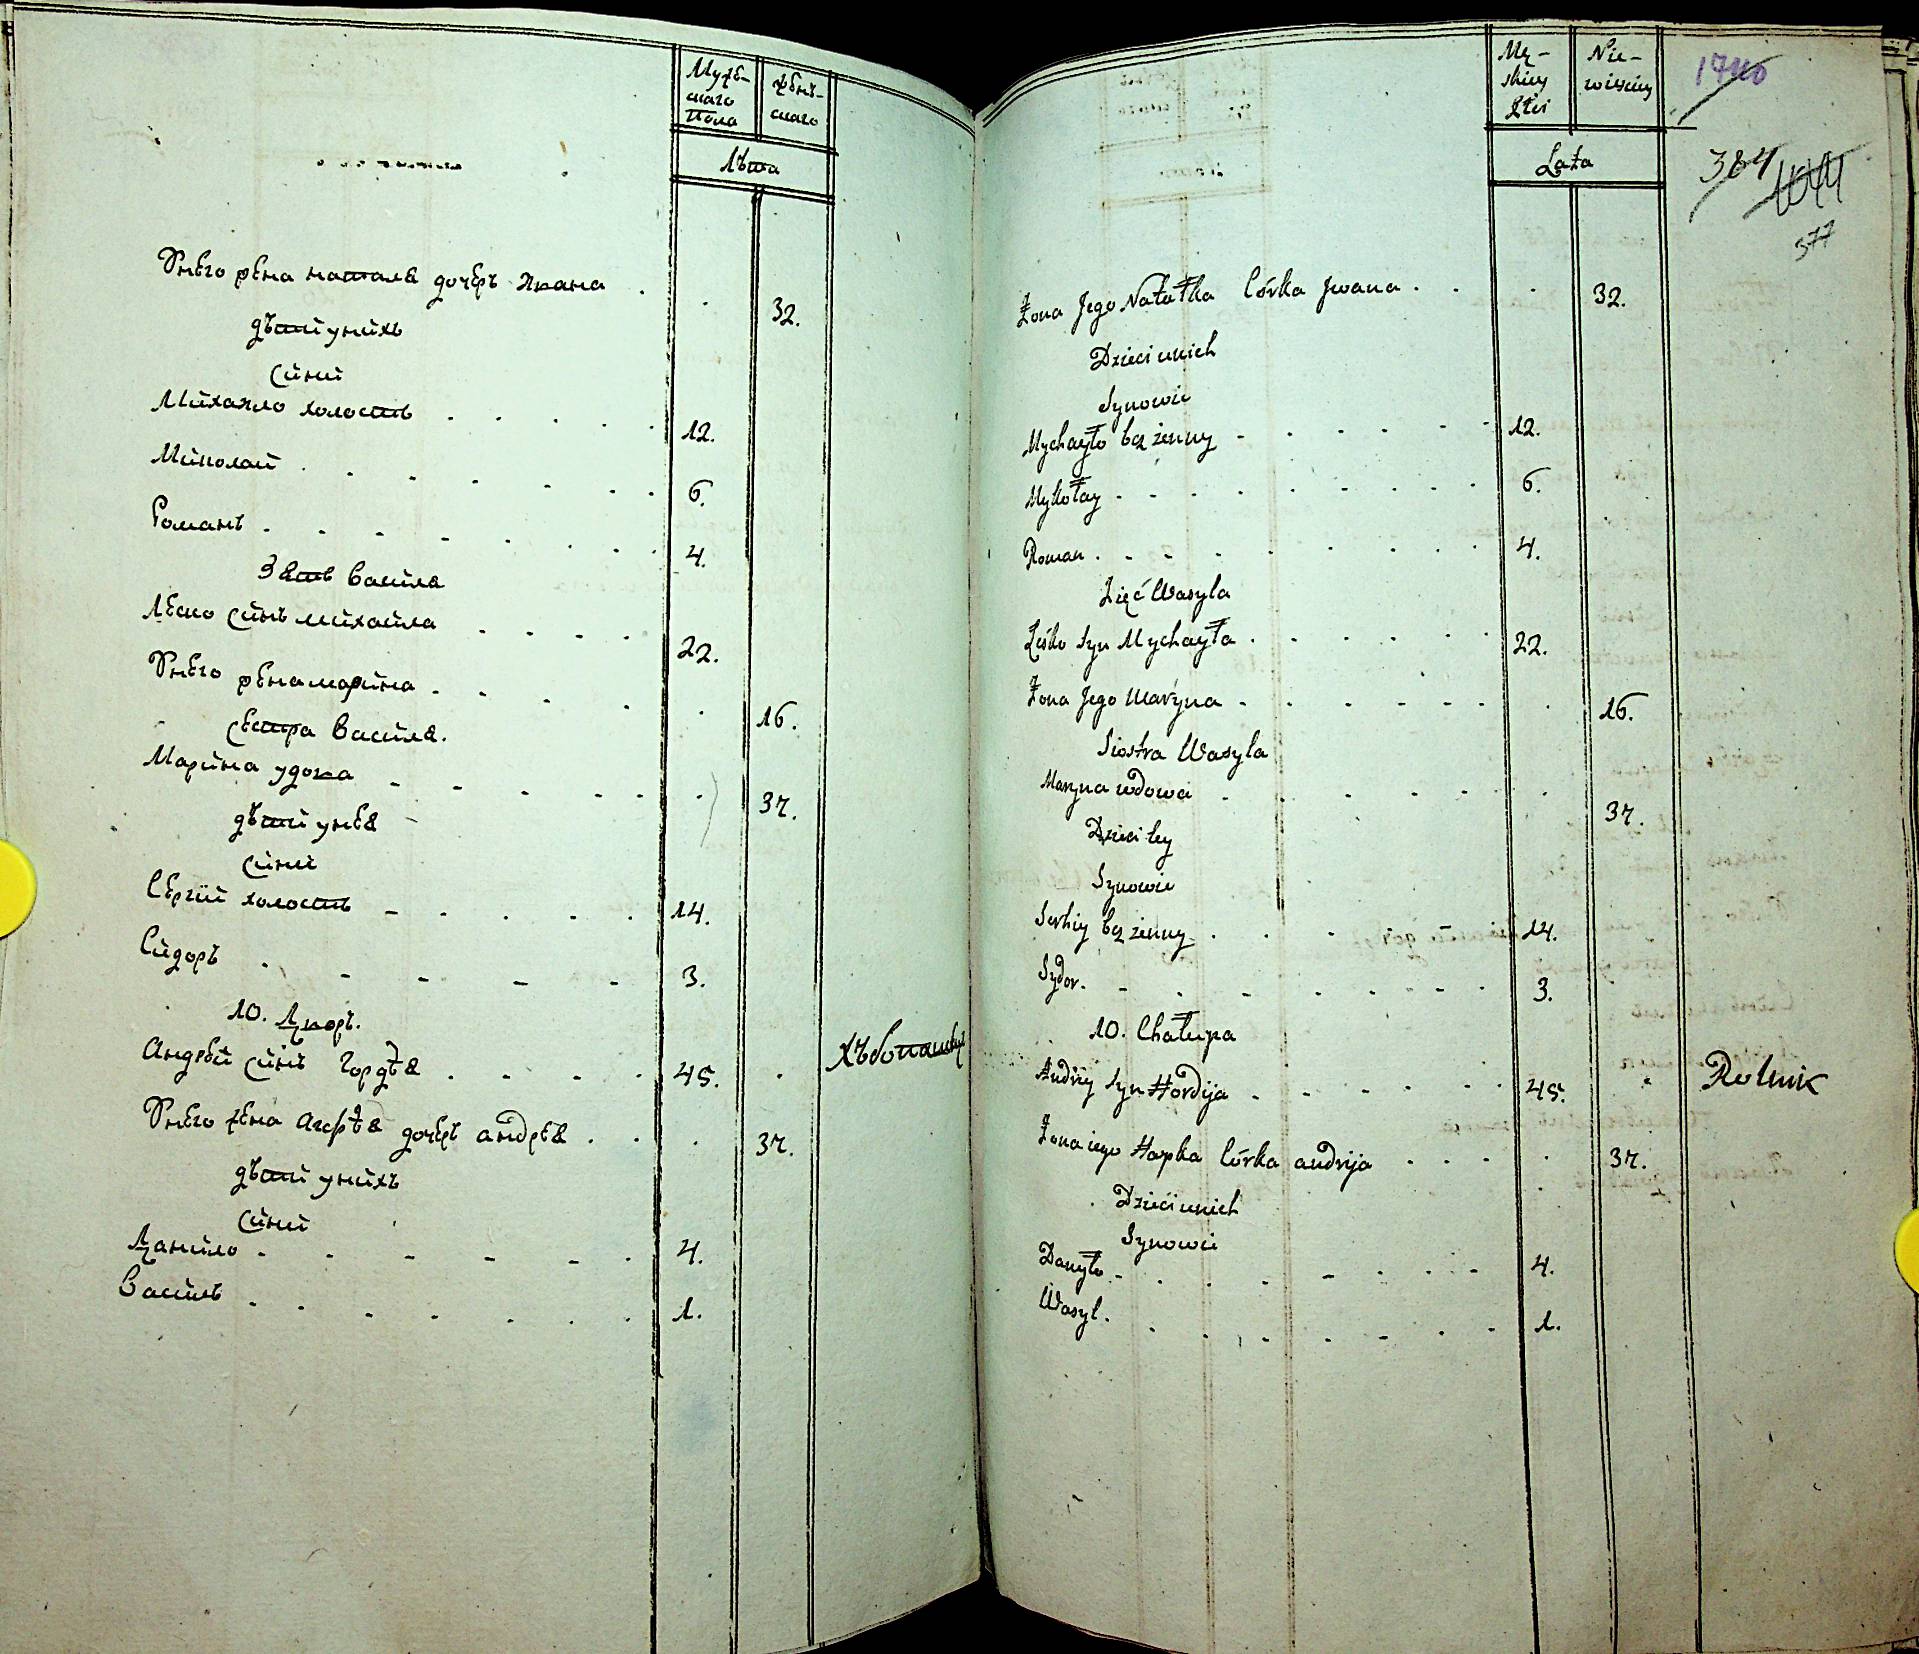 Мужескаго Пола
женскаго
лѣта
У него жена наталя дочерь Ивана . . 32.
дѣти у нихъ
сини
Михайло холостъ . . . . . 12.
Миколай . . . . . . . 6.
Романъ . . . . . . . 4.
Зять Василя
Леско синъ михайла . . . . 22.
У него жена марина . . . . . 16.
сестра Василя.
Марина удова . . . . . . 37.
дѣти у нея
сини
Сергій холостъ . . . . . 14.
Сидоръ . . . . . 3.
10. Дворъ.
Андрей синъ Гордѣя . . . . 45. . хлѣбопашецъ
У него жена Агафѣя дочерь андрея . . . 37.
дѣти у нихъ
сини
Данило . . . . . . 4.
Василь . . . . . . . 1.
Mę-
skiey
Płci
Nie-
wieściey
1740
Lata
384 1044
377
Żona Jego Natałka Córka Jwana . . . 32.
Dzieci u nich
Synowie
Mychayło bez żenny - - - - - 12.
Mykołay . . . . . . . 6.
Roman . . . . . . . 4.
Zięć Wasyla
Leśko syn Mychayła . . . . . 22.
Żona Jego Maryna . . . . . . 16.
Siostra Wasyla
Maryna wdowa . . . . . . 37.
Dzieci Jey
Synowie
Serhiy bez żenny . . . . 14.
Sydor . . . . . . . 3.
10. Chałupa
Andriy Syn Hordija . . . . . 45. . Rolnik
Żona iego Hapka Córka andrija . . . . 37.
Dzieci u nich
Synowie
Danyło . . . . . . . 4.
Wasyl . . . . . . . 1.